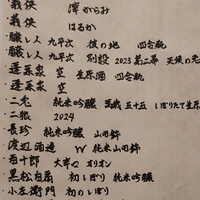 ・義侠 滓がらみ
・義侠 はるか
・醸し人 九平次 彼の地 四合瓶
・醸し人 九平次 別誂 2023 第二章 天候の先
・蓬莱泉 空 生原酒 四合瓶
・蓬莱泉 空
・二兎 純米吟醸 萬歳 五十五 しぼりたて生原
・二兎 2024
・長珍 純米吟醸 山田錦
・渡辺酒造 W 純米山田錦
・而今 大辛口 オリオン
・黒松白扇 初しぼり 純米吟醸
・小左衛門 初のしぼり